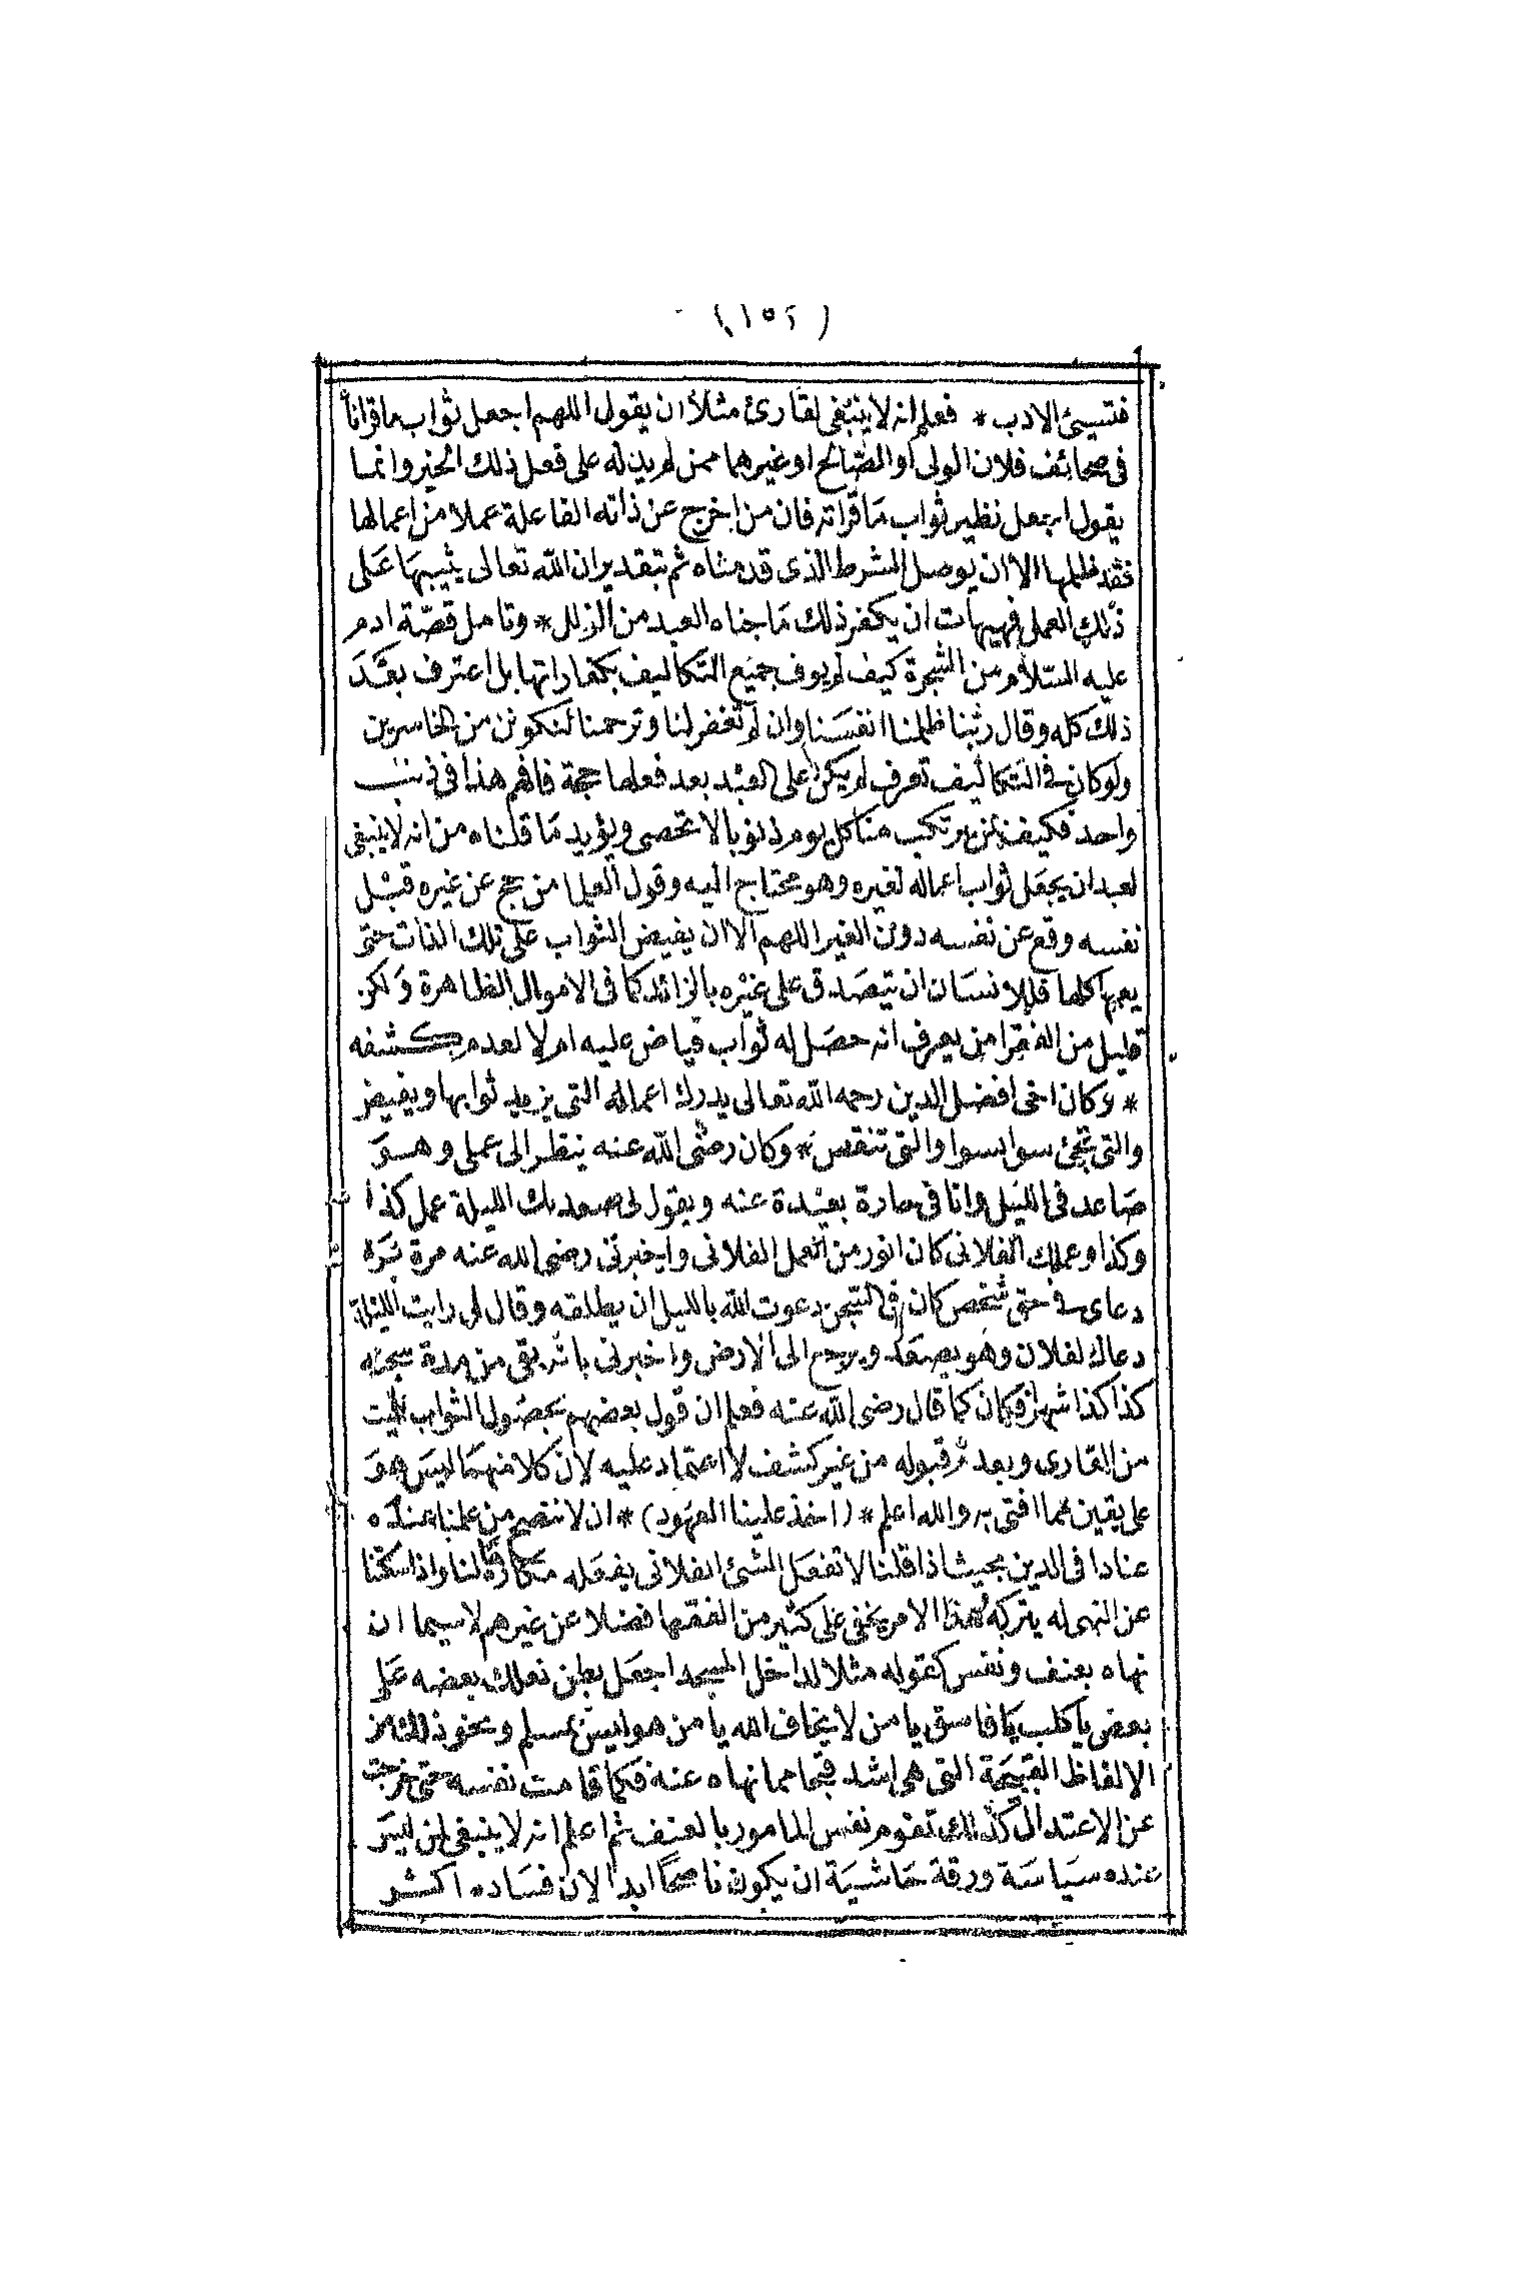 (١٥٢)
فتسيئ الادب * فعلم انه لا ينبغى لقارئ مثلا ان يقول اللهم اجعل ثواب ما قراناه
فى صحائف فلان الولى او الصالح او غيرهما ممن لم يدله على فعل ذلك الخير وانما
يقول اجعل نظير ثواب ما قراته فان من اخرج عن ذاته الفاعلة عملا من اعمالها
فقد ظلمها الا ان يوصل الشرط الذى قدمناه ثم بتقدير ان الله تعالى يثيبها على
ذلك العمل فهيهات ان يكفر ذلك ما جناه العبد من الزلل * وتامل قصة ادم
عليه السلام من الشجرة كيف لم يوف جميع التكاليف بكفاراتها بل اعترف بعد
ذلك كله وقال ربنا ظلمنا انفسنا وان لم تغفر لنا وترحمنا لنكونن من الخاسرين
ولو كان فى التكاليف تعرف لم يكن على العبد بعد فعلها حجة فافهم هذا فى ذنب
واحد فكيف بمن يرتكب منا كل يوم ذنوبا لا تحصى ويؤيد ما قلناه من انه لا ينبغى
لعبد ان يجعل ثواب اعماله لغيره وهو محتاج اليه وقول العلما من حج عن غيره قبل
نفسه وقع عن نفسه دون الغير اللهم الا ان يفيض الثواب على تلك الذات حتى
يعمها كلها فللانسان ان يتصدق على غيره بالزائد كما فى الاموال الظاهرة ولكن
قليل من الفقرا من يعرف انه حصل له ثواب فياض عليه ام لا لعدم كشفه
* وكان اخى افضل الدين رحمه الله تعالى يدرك اعماله التى يزيد ثوابها ويفيض
والتى تجئ سوا بسوا والتى تنقص * وكان رضى الله عنه ينظر الى عملى وهو
صاعد فى الليل وانا فى حارة بعيدة عنه ويقول لى صعد لك الليلة عمل كذا
وكذا وعملك الفلانى كان انور من العمل الفلانى واخبرنى رضى الله عنه مرة برد
دعاى فى حق شخص كان فى السجن دعوت الله بالليل ان يطلقه وقال لى رايت الليلة
دعاك لفلان وهو يصعد ويرجع الى الارض واخبرنى بانه بقى من مدة سجنه
كذا كذا شهرا فكان كما قال رضى الله عنه فعلم ان قول بعضهم بحصول الثواب للميت
من القارى وبعدم قبوله من غير كشف لا اعتماد عليه لان كلا منهما ليس هو
على يقين مما افتى به والله اعلم * (اخذ علينا العهود) * ان لا ننصح من علمنا عنده
عنادا فى الدين بحيث اذا قلنا لا تفعل الشئ الفلانى يفعله مكارة لنا واذا سكتنا
عن النهى له يتركه فهذا الامر يخفى على كثير من الفقها فضلا عن غيرهم لا سيما ان
نهاه بعنف ونفس كقوله مثلا لداخل المسجد اجعل بطن نعلك بعضه على
بعض يا كلب يا فاسق يا من لا يخاف الله يا من هو ليس بمسلم ونحو ذلك من
الالفاظ القبيحة التى هى اشد قبحا مما نهاه عنه فكما قامت نفسه حتى خرجت
عن الاعتدال كذلك تقوم نفس المامور بالعنف ثم اعلم انه لا ينبغى لمن ليس
عنده سياسة ورقة حاشية ان يكون ناصحا ابدا لان فساده اكثر